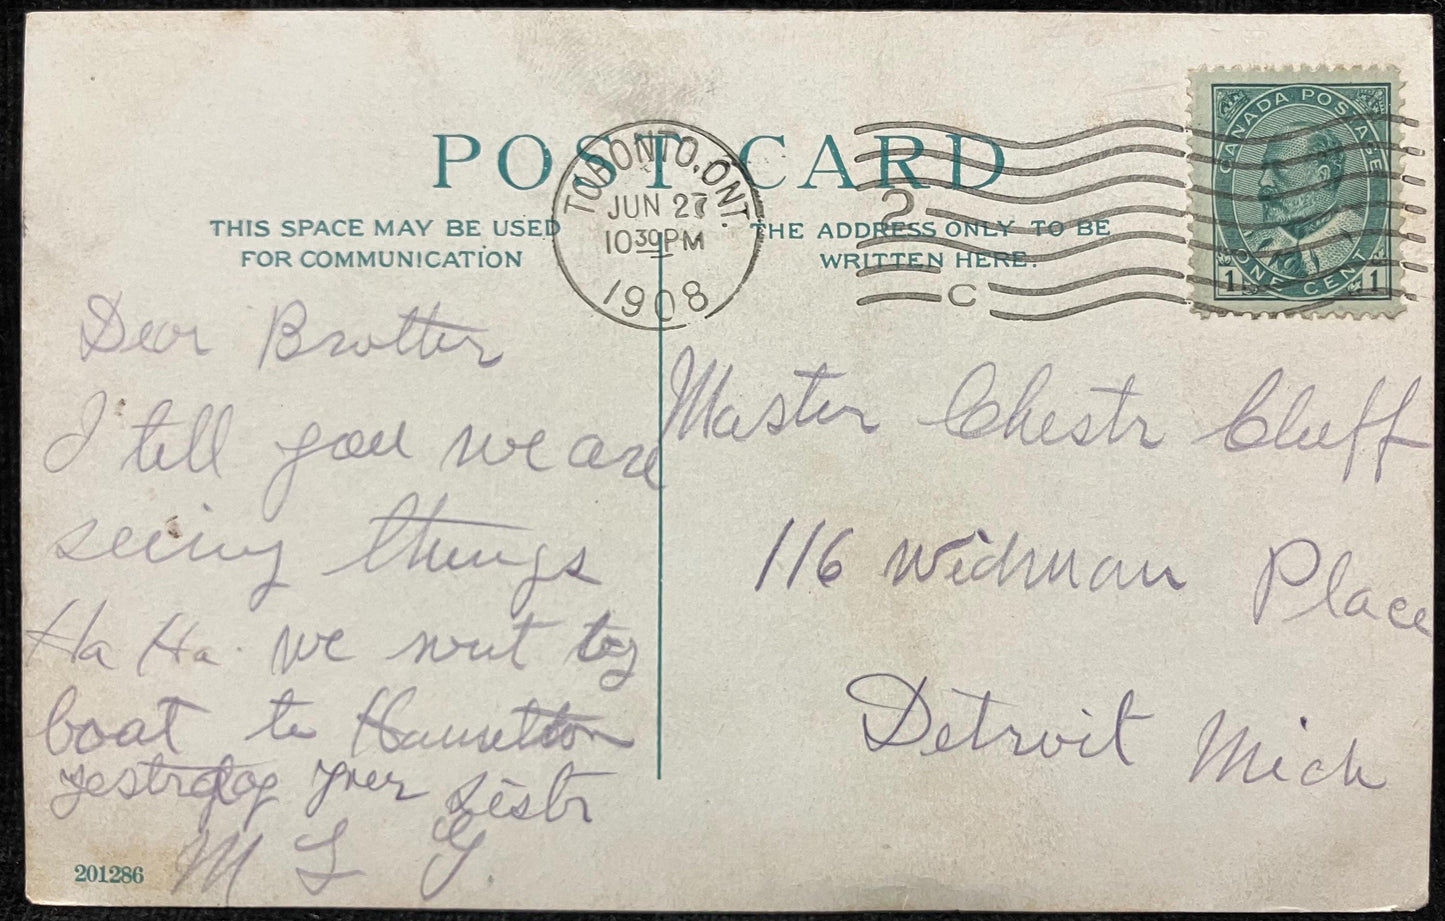 POST CARD
THIS SPACE MAY BE USED
FOR COMMUNICATION
THE ADDRESS ONLY TO BE
WRITTEN HERE.
TORONTO, ONT.
JUN 27
10 30 PM
1908
2
C
CANADA POSTAGE
1 ONE CENT 1
Dear Brother
I tell you we are
seeing things
Ha Ha. we went by
boat to Hamilton
yesterday your Sistr
M L G.
201286
Master Chestr Cluff
116 Widman Place
Detroit Mich